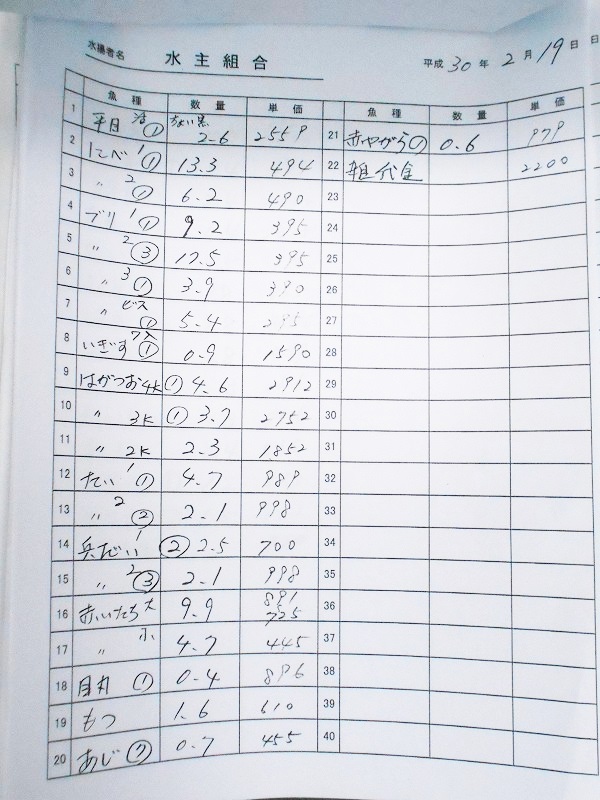 水揚者名 水主組合 平成 30 年 2月 19日 日
魚種 数量 単価 魚種 数量 単価
1 平目 活 ① 2.6 2559 21 赤やがら① 0.6 979
2 にべ 1 ① 13.3 494 22 箱代金 2200
3 〃 2 ① 6.2 490 23
4 ブリ 1 ① 9.2 395 24
5 〃 2 ③ 17.5 395 25
6 〃 3 ① 3.9 390 26
7 〃 ビス ① 5.4 295 27
8 いぎす ① 0.9 1590 28
9 はがつお 4K ① 4.6 2912 29
10 〃 3K ① 3.7 2752 30
11 〃 2K 2.3 1852 31
12 たい 1 ① 4.7 989 32
13 〃 2 ② 2.1 998 33
14 1 ② 2.5 700 34
15 〃 2 ③ 2.1 998 35
16 赤いたち 大 9.9 891 725 36
17 〃 小 4.7 445 37
18 ① 0.4 896 38
19 もつ 1.6 610 39
20 あじ 0.7 455 40